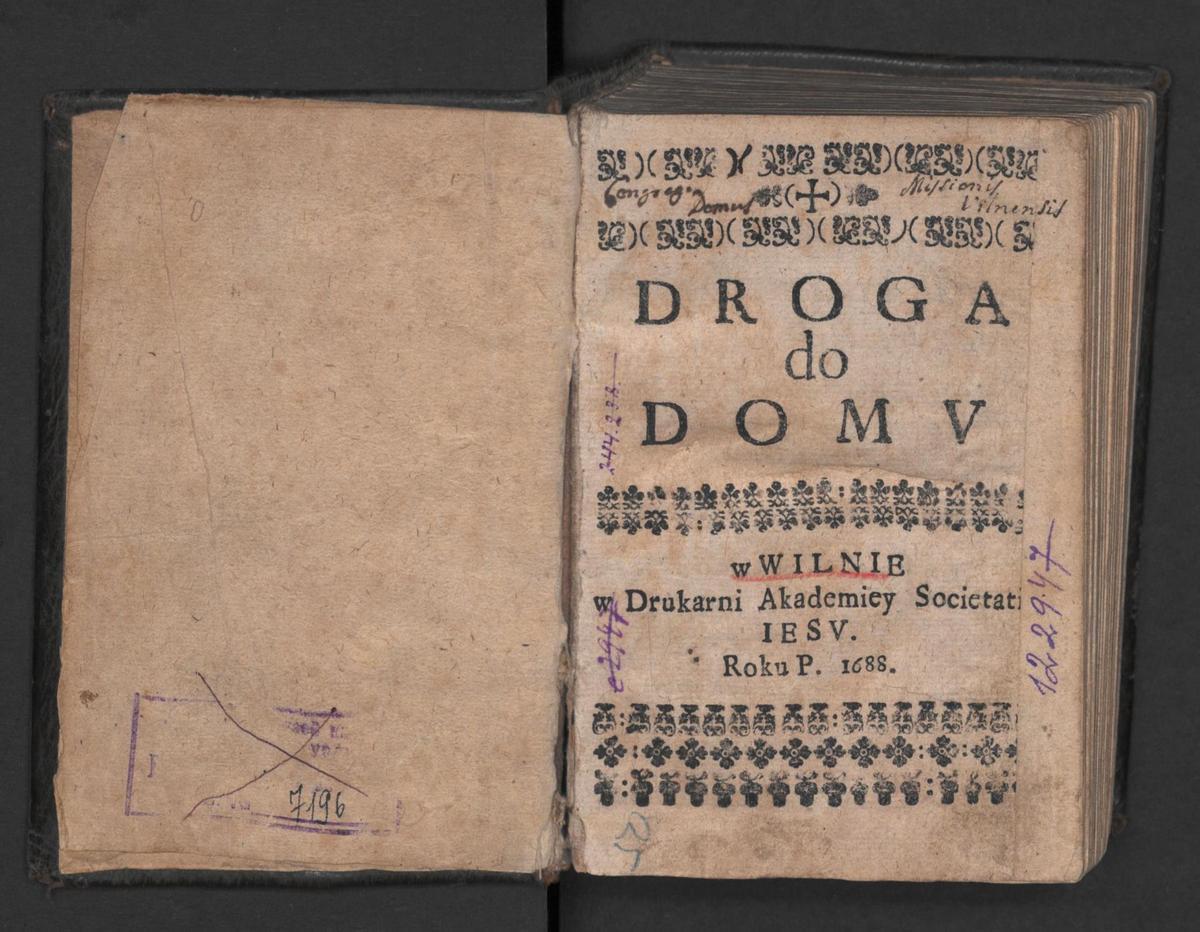 7196
Congreg. Domus Missionis
Vilnensis
DROGA
do
DOMV
w WILNIE
w Drukarni Akademiey Societati
IESV.
Roku P. 1688.
122947